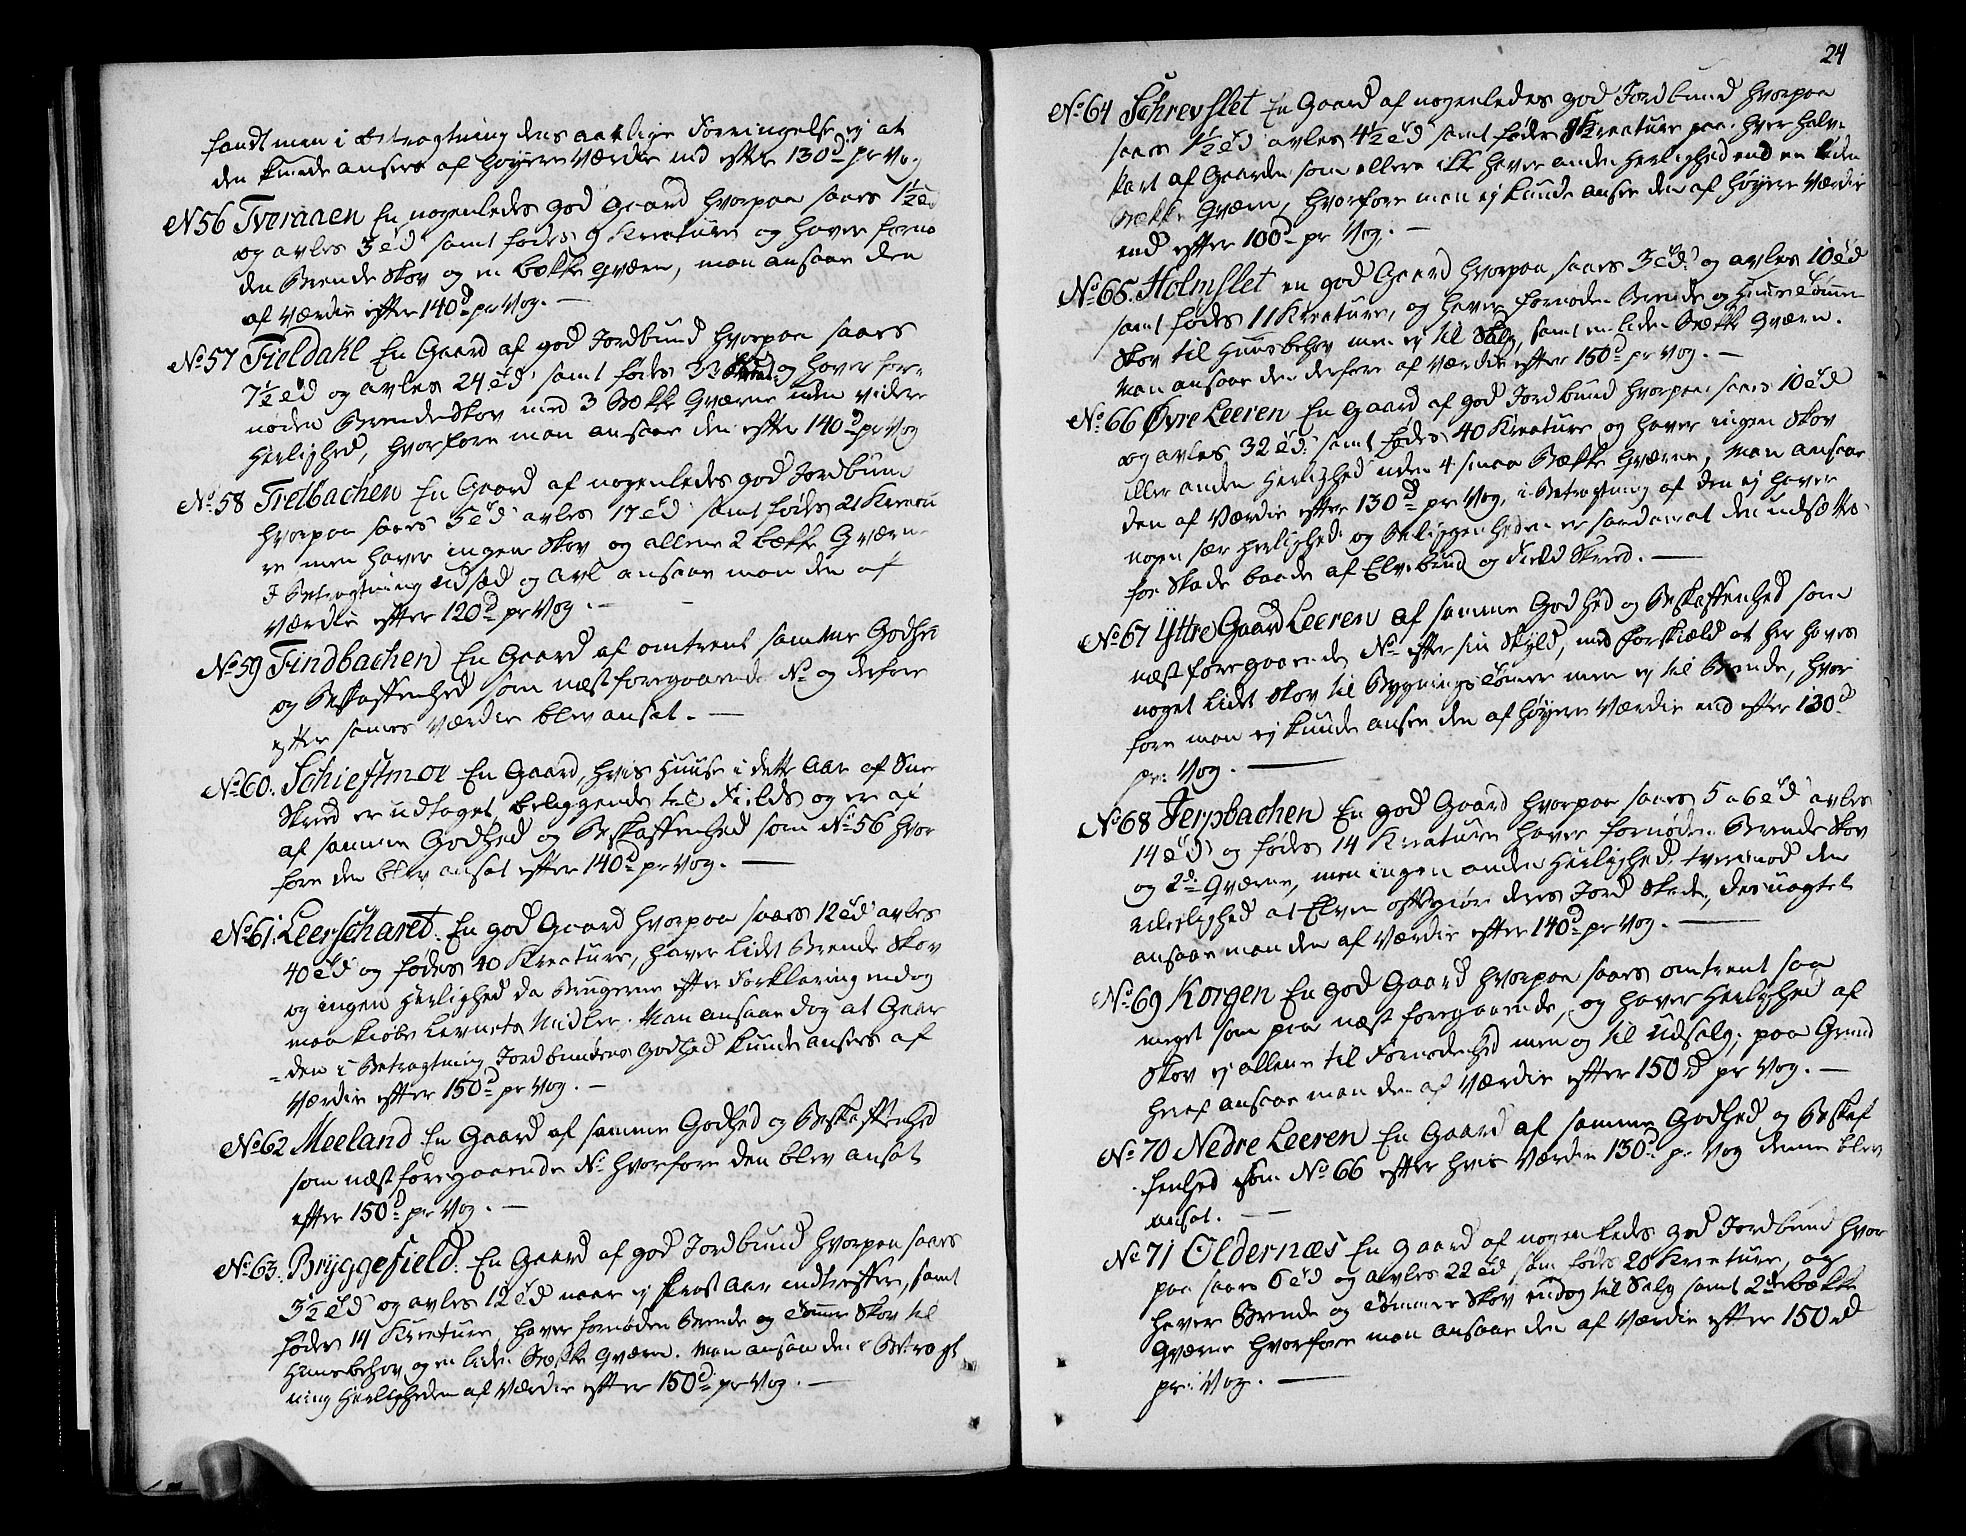 fandt men i Betragtning dens aarlige Forringelse ej at
den kunde ansees af høyere Værdie end efter 130d pr Vog
No 56 Tveraaen En nogenledes god Gaard hvorpaa saaes 1½ Td
og avles 3 Td samt fødes 9 Kreature og haver fornø
den Brende Skov og en bække Qværn, man ansaae den
af Værdie efter 140d pr Vog. —
No 57 Fieldahl En Gaard af god Jordbund hvorpaa saaes
7½ Td og avles 24 Td samt fødes 33 og haver for-
nøden Brende Skov med 3 Bække Qværne uden videre
Herlighed, hvorfore man ansaae den efter 140d pr Vog
No 58 Trelbachen En Gaard af nogenledes god Jordbund
hvorpaa saaes 5 Td avles 17 Td samt fødes 21 Kreatu
re men haver ingen Skov og allene 2 bække Qværne
I Betragtning udsæd og avl ansaae man den af
Værdie efter 120d pr Vog. —
No 59 Findbachen En Gaard af omtrent samme Godhed
og Beskaffenhed som næstforegaaende No og derfore
efter samme Værdie blev ansat. —
No 60. Schiestmoe En Gaard, hvis Huuse i dette Aar af Snee
Skreed er udtaget, beliggende til Fields og er af
samme Godhed og Beskaffenhed som No 56 hvor
fore den blev ansat efter 140d pr Vog. —
No 61. Leerscharet. En god Gaard hvorpaa saaes 12 Td avles
40 Td og fødes 40 Kreature, haver Lidt Brende Skov
og ingen Herlighed da Brugerne efter Forklaring endog
maa kiøbe Levnets Midler. Man ansaae dog at Gaar
den i Betragtning Jordbundens Godhed kunde ansees af
Værdie efter 150d pr Vog. —
No 62 Meeland En Gaard af samme Godhed og Beskaffenhed
som næst foregaaende No hvorfore den blev ansat
efter 150d pr Vog. —
No 63. Bryggefield. En Gaard af god Jordbund hvorpaa saaes
3½ Td og avles 12 Td naar ej Frost Aar indtreffer, samt
fødes 14 Kreature, haver fornøden Brende og Tømmer Skov til
Huusbehov og en liden Bække Qværn. Man ansaae den i Betragt
ning Herligheden af Værdie efter 150d pr Vog. —
24
No 64 Schrevslet En Gaard af nogenledes god Jordbund hvorpaa
saaes 1½ Td avles 4½ Td samt fødes Kreature paa hver halv-
Part af Gaarden som ellers ikke haver anden Herlighed end en liden
Bække Qværn, hvorfore man ej kunde ansee den af høyere Værdie
end efter 100d pr Vog. —
No 65. Holmslet en god Gaard hvorpaa saaes 3 Td og avles 10 Td
samt fødes 11 Kreature, og haver fornøden Brende og Huus Tømmer
Skov til Huusbehov men ej til Salg, samt en liden Bække Qværn.
Man ansaae den derfore af Værdie efter 150d pr Vog. —
No 66 Øvre Leeren En Gaard af god Jordbund hvorpaa saaes 10 Td
og avles 32 Td samt fødes 40 Kreature og haver ingen Skov
eller anden Herlighed uden 4 smaa Bække Qværne, Man ansaae
den af Værdie efter 130d pr Vog, i Betragtning af den ej haver
nogen sær herlighed og Beliggenheden er saadan at den udsættes
for Skade baade af Elvebrud og Field Skreed. —
No 67 Yttre Gaard Leeren af samme Godhed og Beskaffenhed som
næst foregaaende No efter sin Skyld, med Forskiæld at her haves
noget Lidt Skov til Bygnings Tømer men ej til Brende, hvor
fore man ej kunde ansee den af høyere Værdie end efter 130d
pr: Vog. —
No 68 Jerpbachen En god Gaard hvorpaa saaes 5 a 6 Td avles
14 Td og fødes 14 Kreature haver fornøden Brende Skov
og 2de Qværne, men ingen anden Herlighed, tvertimod den
uleylighed at Elven ofte giør deres Jord Skade, desuagtet
ansaae man den af Værdie efter 140d pr Vog. —
No 69 Korgen En god Gaard hvorpaa saaes omtrent saa
meget som paa næst foregaaende, og haver Herlighed af
Skov ej allene til Fornødenhed men og til udsalg; paa Grund
heraf ansaae man den af Værdie efter 150d pr Vog. —
No 70 Nedre Leeren En Gaard af samme Godhed og Beskaf
fenhed som No 66 efter hvis Værdie 130d pr Vog denne blev
ansat. —
No 71 Oldernæs En Gaard af nogenledes god Jordbund hvor
paa saaes 6 Td og avles 22 Td samt fødes 20 Kreature, og
haver Brende og Tømmer Skov endog til Salg samt 2de bække
Qværne hvorfore man ansaae den af Værdie efter 150d
pr: Vog. —